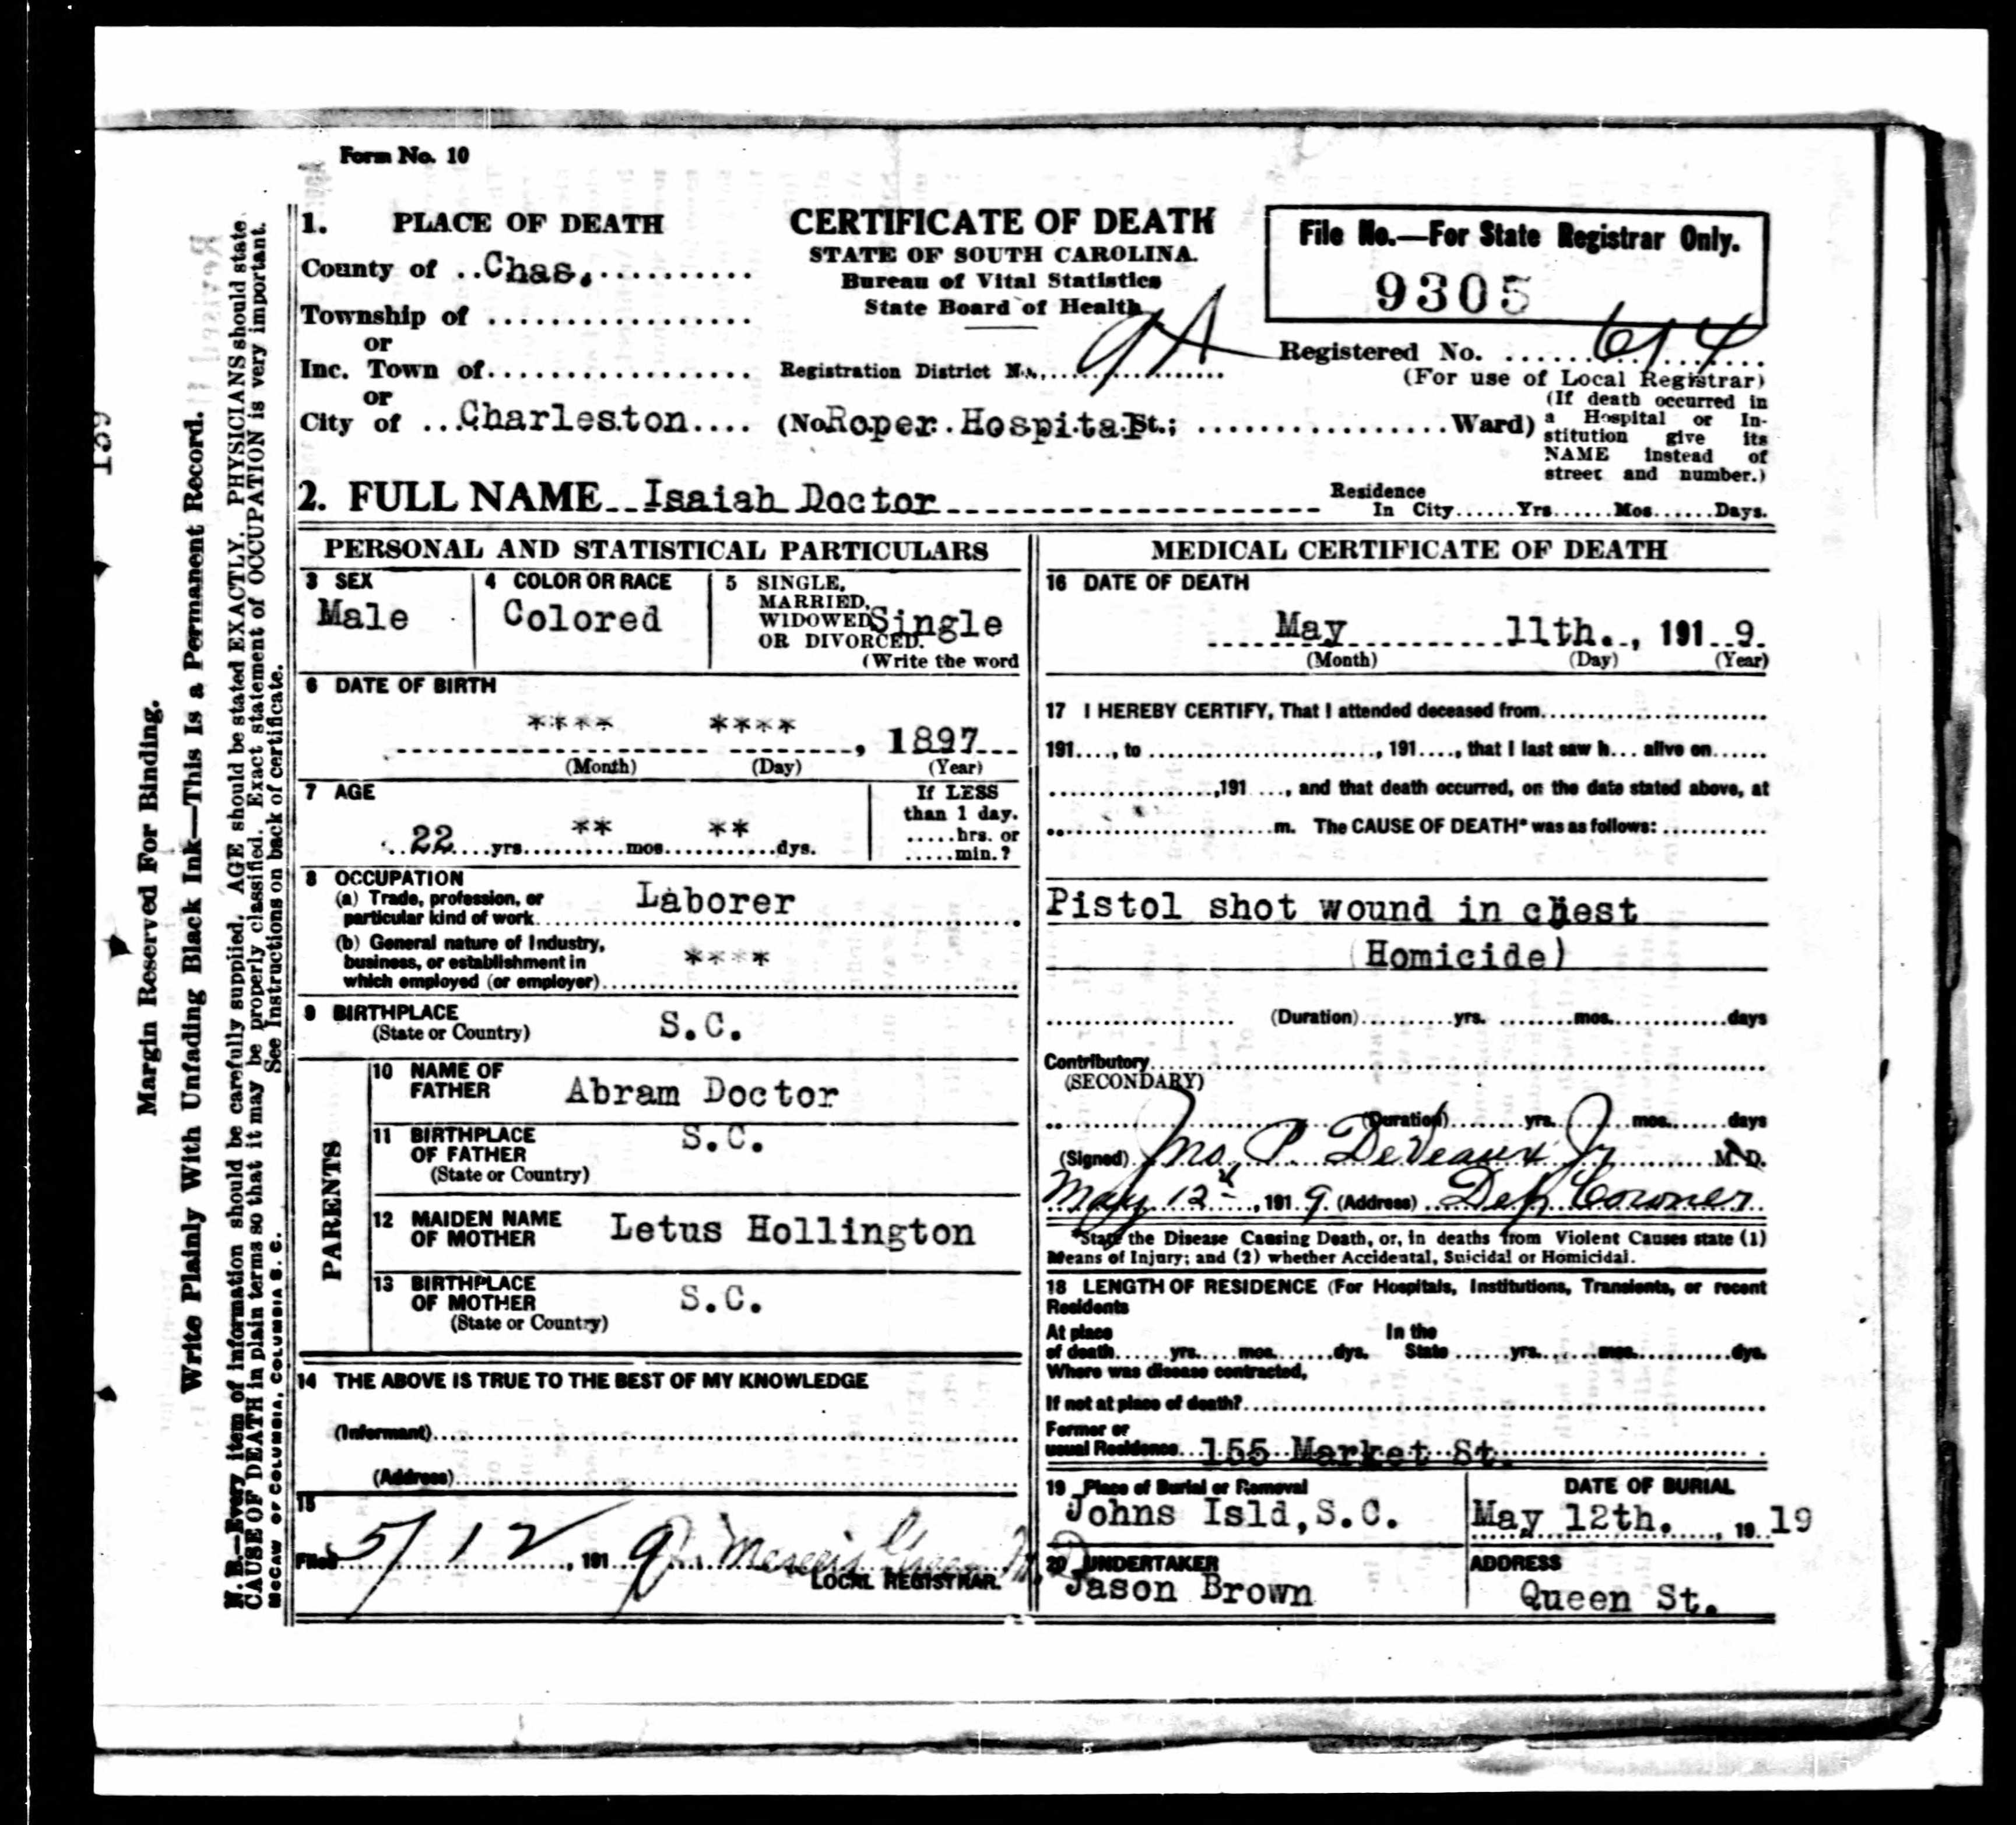 Form No. 10
1. PLACE OF DEATH
County of ..Chas...........
Township of ..................
or
Inc. Town of..................
or
City of ...Charleston....
CERTIFICATE OF DEATH
STATE OF SOUTH CAROLINA.
Bureau of Vital Statistics
State Board of Health
Registration District No. 9A
(No Roper Hospital St.; ................Ward)
File No.—For State Registrar Only.
9305
Registered No. 614
(For use of Local Registrar)
(If death occurred in
a Hospital or In-
stitution give its
NAME instead of
street and number.)
2. FULL NAME Isaiah Doctor
Residence
In City......Yrs......Mos......Days.
PERSONAL AND STATISTICAL PARTICULARS
3 SEX
Male
4 COLOR OR RACE
Colored
5 SINGLE,
MARRIED,
WIDOWED
OR DIVORCED.
Single
(Write the word
6 DATE OF BIRTH
**** ****, 1897
(Month) (Day) (Year)
7 AGE
22 yrs. ** mos. ** dys.
If LESS
than 1 day.
.....hrs. or
.....min.?
8 OCCUPATION
(a) Trade, profession, or
particular kind of work
Laborer
(b) General nature of Industry,
business, or establishment in
which employed (or employer)
****
9 BIRTHPLACE
(State or Country)
S.C.
PARENTS
10 NAME OF
FATHER
Abram Doctor
11 BIRTHPLACE
OF FATHER
(State or Country)
S.C.
12 MAIDEN NAME
OF MOTHER
Letus Hollington
13 BIRTHPLACE
OF MOTHER
(State or Country)
S.C.
14 THE ABOVE IS TRUE TO THE BEST OF MY KNOWLEDGE
(Informant)
(Address)
15
Filed 5/12, 1919
LOCAL REGISTRAR.
MEDICAL CERTIFICATE OF DEATH
16 DATE OF DEATH
May 11th., 1919.
(Month) (Day) (Year)
17 I HEREBY CERTIFY, That I attended deceased from
191...., to ........................, 191...., that I last saw h... alive on......
..................,191...., and that death occurred, on the date stated above, at
........................m. The CAUSE OF DEATH* was as follows:
Pistol shot wound in chest
(Homicide)
(Duration)..........yrs. ........mos............days
Contributory
(SECONDARY)
(Duration)........yrs. ........mos........days
(Signed) Jno. P. DeVeaux Jr M.D.
May 12, 1919 (Address) Dep Coroner
*State the Disease Causing Death, or, in deaths from Violent Causes state (1)
Means of Injury; and (2) whether Accidental, Suicidal or Homicidal.
18 LENGTH OF RESIDENCE (For Hospitals, Institutions, Transients, or recent
Residents
At place In the
of death......yrs.....mos.......dys. State ......yrs.......mos..........dys.
Where was disease contracted,
If not at place of death?
Former or
usual Residence 155 Market St.
19 Place of Burial or Removal
Johns Isld, S.C.
DATE OF BURIAL
May 12th., 1919
20 UNDERTAKER
Jason Brown
ADDRESS
Queen St.
Margin Reserved For Binding.
Write Plainly With Unfading Black Ink—This Is a Permanent Record.
N. B.—Every item of information should be carefully supplied. AGE should be stated EXACTLY. PHYSICIANS should state
CAUSE OF DEATH in plain terms so that it may be properly classified. Exact statement of OCCUPATION is very important.
See Instructions on back of certificate.
McCAW OF COLUMBIA, COLUMBIA S. C.